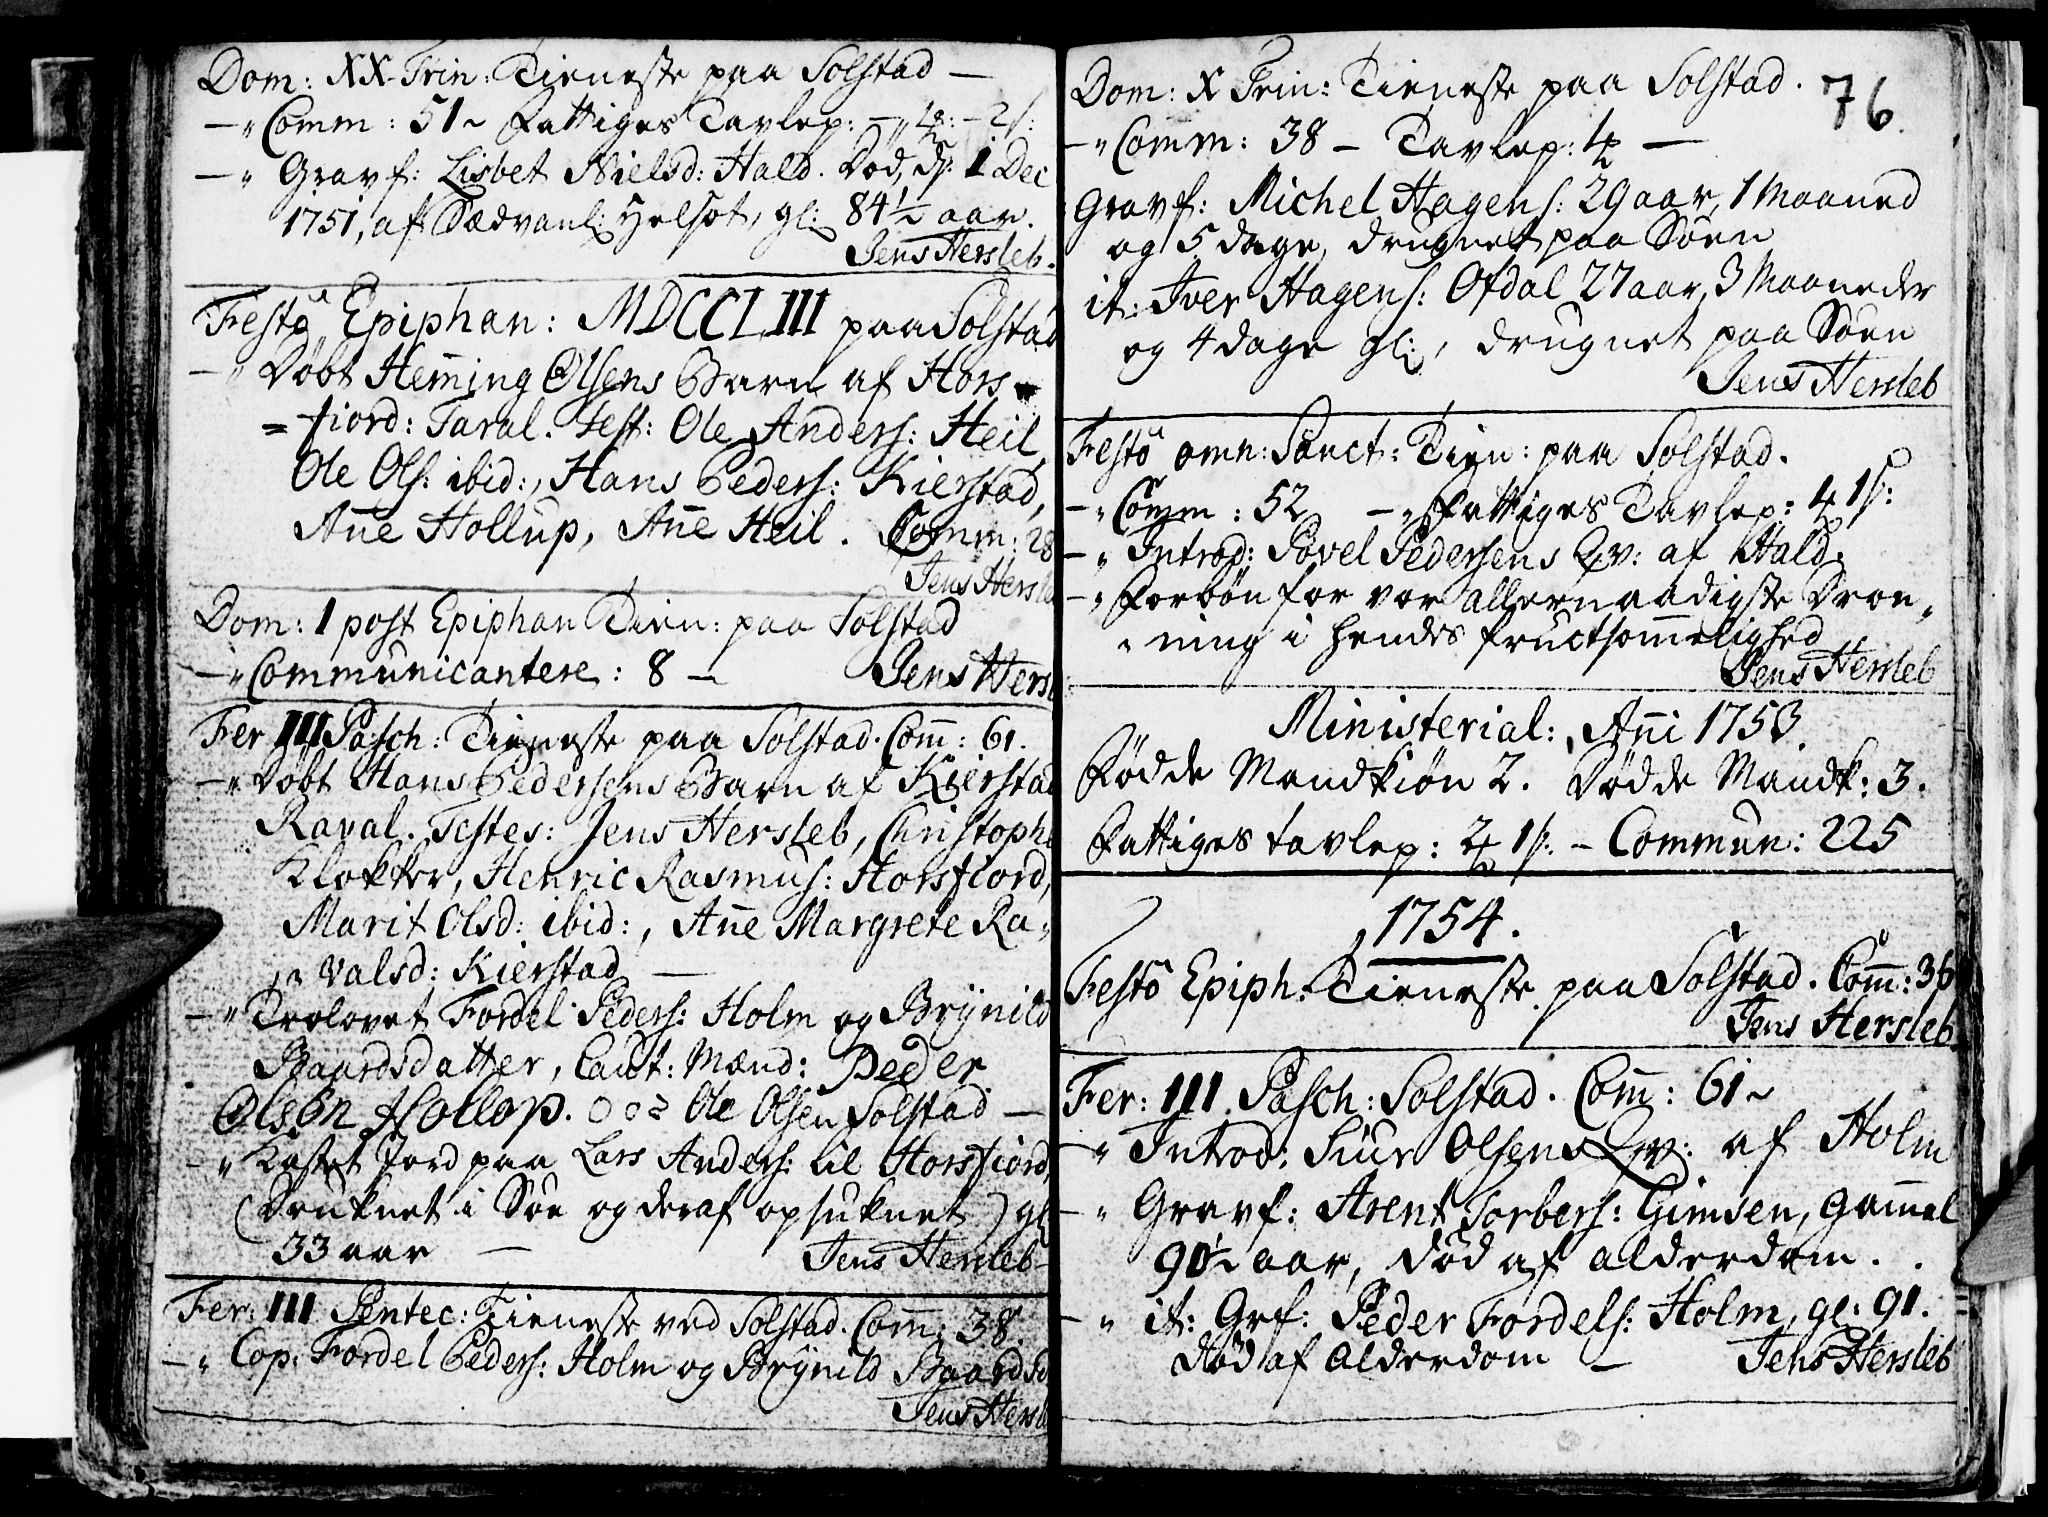 Dom: XX Trin: Tieneste paa Solstad —
—" Comm: 51 ~ Fattiges Tavlep: —
—" Gravf: Lisbet Nielsd: Hald. Död, d: 1 Dec
1751, af Sædvanl: Helsot, gl: 84½ aar.
Jens Hersleb.
Festo Epiphan: MDCCLIII paa Solstad
—" Döbt Hem̄ing Olsens Barn af Hors
=fiord: Taral. Test: Ole Anders: Heil,
Ole Ols: ibid:, Hans Peders: Kierstad,
An̄e Hollup, An̄e Heil. Comm: 28
Jens Hersle
Dom: 1 post Epiphan Tien: paa Solstad
—" Communicantere: 8 — Jens Hersl
Fer III Pasch: Tieneste paa Solstad. Com̄: 61.
—" Döbt Hans Pedersens Barn af Kierstad
Raval. Testes: Jens Hersleb, Christophe
Klokker, Henric Rasmus: Horsfiord,
Marit Olsd: ibid:, An̄e Margrete Ra-
valsd: Kierstad —
—" Trolovet Fordel Peders: Holm og Brÿnild
Baardsdatter, Caut: Mænd: Peder
Olsön Hollop. Ole Olsen Solstad —
—" Kastet Jord paa Lars Anders: lil Horsfiord,
(Druknet i Söe og deraf opsuknet) gl
33 aar — Jens Hersleb
Fer: III Pentec: Tieneste ved Solstad. Com̄: 38.
—" Cop: Fordel Peders: Holm og Brÿnild Baardsd
Jens Hersle
76
Dom: X Trin: Tieneste paa Solstad.
—" Comm: 38 — Tavlep: 4 —
Gravf: Michel Hagens: 29 aar, 1 Maaned
og 5 dage, drugnet paa Söen
it: Iver Hagens: Ofdal 27 aar, 3 Maaneder
og 4 dage gl:, drugnet paa Söen
Jens Hersleb
Festo omn: Sanct: Tien: paa Solstad.
—" Com̄m: 52 —" Fattiges Tavlep: 4 1s:
—" Introd: Povel Pedersens Qv: af Hald.
—" Forbön for vor allernaadigste Dron-
ning i hendes fructsom̄elighed
Jens Hersleb
Ministerial: An̄i 1753.
Födde Mandkiön 2. Dödde Mandk: 3.
Fattiges tavlep: 1s: — Commun: 225
1754.
Festo Epiph: Tieneste paa Solstad. Com̄: 36
Jens Hersleb
Fer: III. Pasch: Solstad. Com̄: 61 ~
—" Introd: Siur Olsens Qv: af Holm
—" Gravf: Arent Torbers: Gimsen, gam̄el
90½ aar, död af alderdom.
—" it: Grf: Peder Fordels: Holm, gl: 91.
död af Alderdom — Jens Hersleb